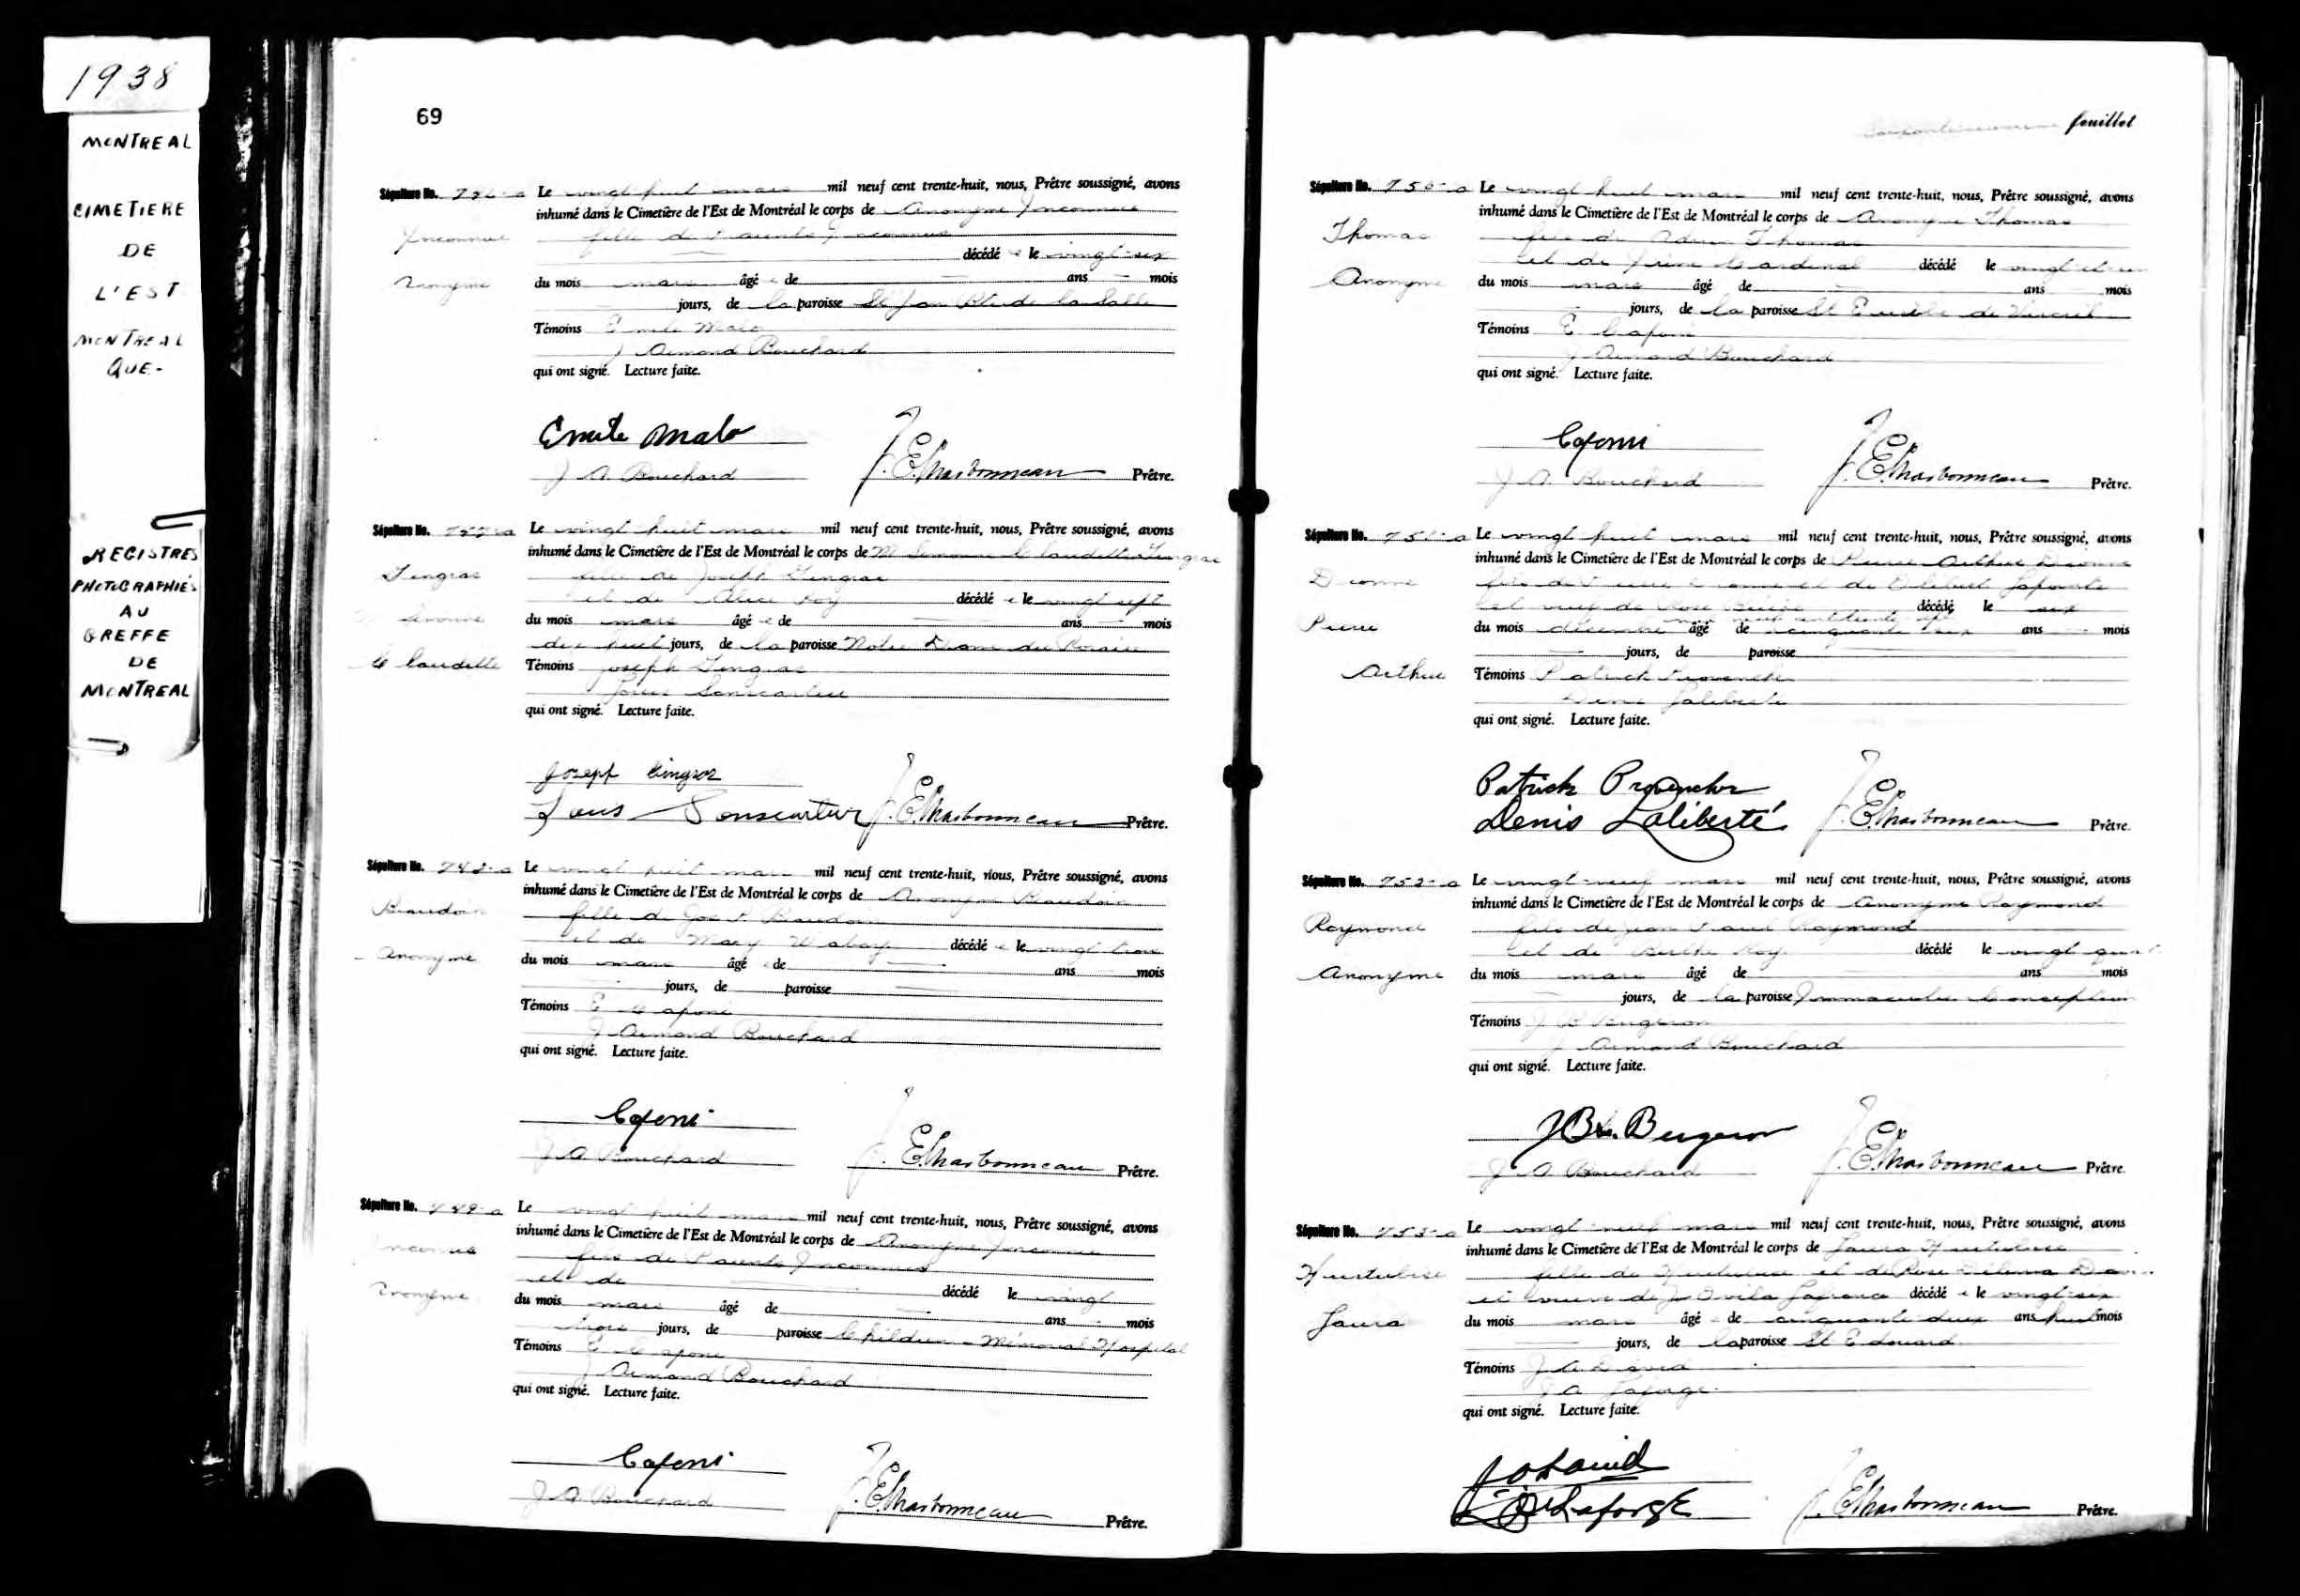 1938
MONTREAL
CIMETIERE
DE
L'EST
MONTREAL
QUE-
REGISTRES
PHOTOGRAPHIÉS
AU
GREFFE
DE
MONTREAL
69
Sépulture No. Le vingt huit mars mil neuf cent trente-huit, nous, Prêtre soussigné, avons
inhumé dans le Cimetière de l'Est de Montréal le corps de Anonyme Inconnue
Inconnue fille de Parents Inconnus
décédé e le vingt-six
Anonyme du mois mars âgé e de ans mois
jours, de la paroisse St Jean Bte de la Salle
Témoins Emile Malo
J Armand Bouchard
qui ont signé. Lecture faite.
Emile Malo
J A. Bouchard J. E. Charbonneau Prêtre.
Sépulture No. Le vingt huit mars mil neuf cent trente-huit, nous, Prêtre soussigné, avons
inhumé dans le Cimetière de l'Est de Montréal le corps de M Simonne Claudette Gingras
Gingras fille de Joseph Gingras
et de Alice Roy décédé e le vingt sept
Simonne du mois mars âgé e de ans mois
dix huit jours, de la paroisse Notre Dame du Rosaire
Claudette Témoins Joseph Gingras
qui ont signé. Lecture faite.
Joseph Gingras
J. E. Charbonneau Prêtre.
Sépulture No. 748-a Le vingt huit mars mil neuf cent trente-huit, nous, Prêtre soussigné, avons
inhumé dans le Cimetière de l'Est de Montréal le corps de Anonyme Beaudoin
Beaudoin fille de
et de Mary décédé e le vingt trois
Anonyme du mois mars âgé e de ans mois
jours, de paroisse
Témoins E Caponi
J Armand Bouchard
qui ont signé. Lecture faite.
Caponi
J A. Bouchard J. E. Charbonneau Prêtre.
Sépulture No. 749-a Le vingt huit mars mil neuf cent trente-huit, nous, Prêtre soussigné, avons
inhumé dans le Cimetière de l'Est de Montréal le corps de Anonyme Inconnu
Inconnu fils de Parents Inconnus
et de décédé le vingt
Anonyme du mois mars âgé de ans mois
trois jours, de paroisse Children Mémorial Hospital
Témoins E Caponi
J Armand Bouchard
qui ont signé. Lecture faite.
Caponi
J A. Bouchard J. E. Charbonneau Prêtre.
feuillet
Sépulture No. 750-a Le vingt huit mars mil neuf cent trente-huit, nous, Prêtre soussigné, avons
inhumé dans le Cimetière de l'Est de Montréal le corps de Anonyme Thomas
Thomas fils de Thomas
et de Cardinal décédé le vingt et un
Anonyme du mois mars âgé de ans mois
jours, de la paroisse St de
Témoins E Caponi
J Armand Bouchard
qui ont signé. Lecture faite.
Caponi
J A. Bouchard J. E. Charbonneau Prêtre.
Sépulture No. 751-a Le vingt huit mars mil neuf cent trente-huit, nous, Prêtre soussigné, avons
inhumé dans le Cimetière de l'Est de Montréal le corps de Pierre Arthur Dionne
Dionne fils de Pierre Dionne et de Laporte
et veuf de Rose décédé le six
mil neuf cent trente sept
Pierre du mois décembre âgé de cinquante ans mois
jours, de paroisse
Arthur Témoins Patrick Provencher
Denis Laliberté
qui ont signé. Lecture faite.
Patrick Provencher
Denis Laliberté J. E. Charbonneau Prêtre.
Sépulture No. 752-a Le vingt-neuf mars mil neuf cent trente-huit, nous, Prêtre soussigné, avons
inhumé dans le Cimetière de l'Est de Montréal le corps de Anonyme Raymond
Raymond fils de Jean Paul Raymond
et de Berthe Roy décédé le vingt
Anonyme du mois mars âgé de ans mois
jours, de la paroisse Immaculée Conception
Témoins J B Bergeron
J Armand Bouchard
qui ont signé. Lecture faite.
J B Bergeron
J A. Bouchard J. E. Charbonneau Prêtre.
Sépulture No. 753-a Le vingt-neuf mars mil neuf cent trente-huit, nous, Prêtre soussigné, avons
inhumé dans le Cimetière de l'Est de Montréal le corps de Laura Hurtubise
Hurtubise fille de Hurtubise et de Rose Délima
et veuve de J Ovila décédé e le vingt-six
Laura du mois mars âgé e de cinquante deux ans huit mois
jours, de la paroisse St Edouard
Témoins J A David
J A Laforge
qui ont signé. Lecture faite.
J A David
Laforge J. E. Charbonneau Prêtre.